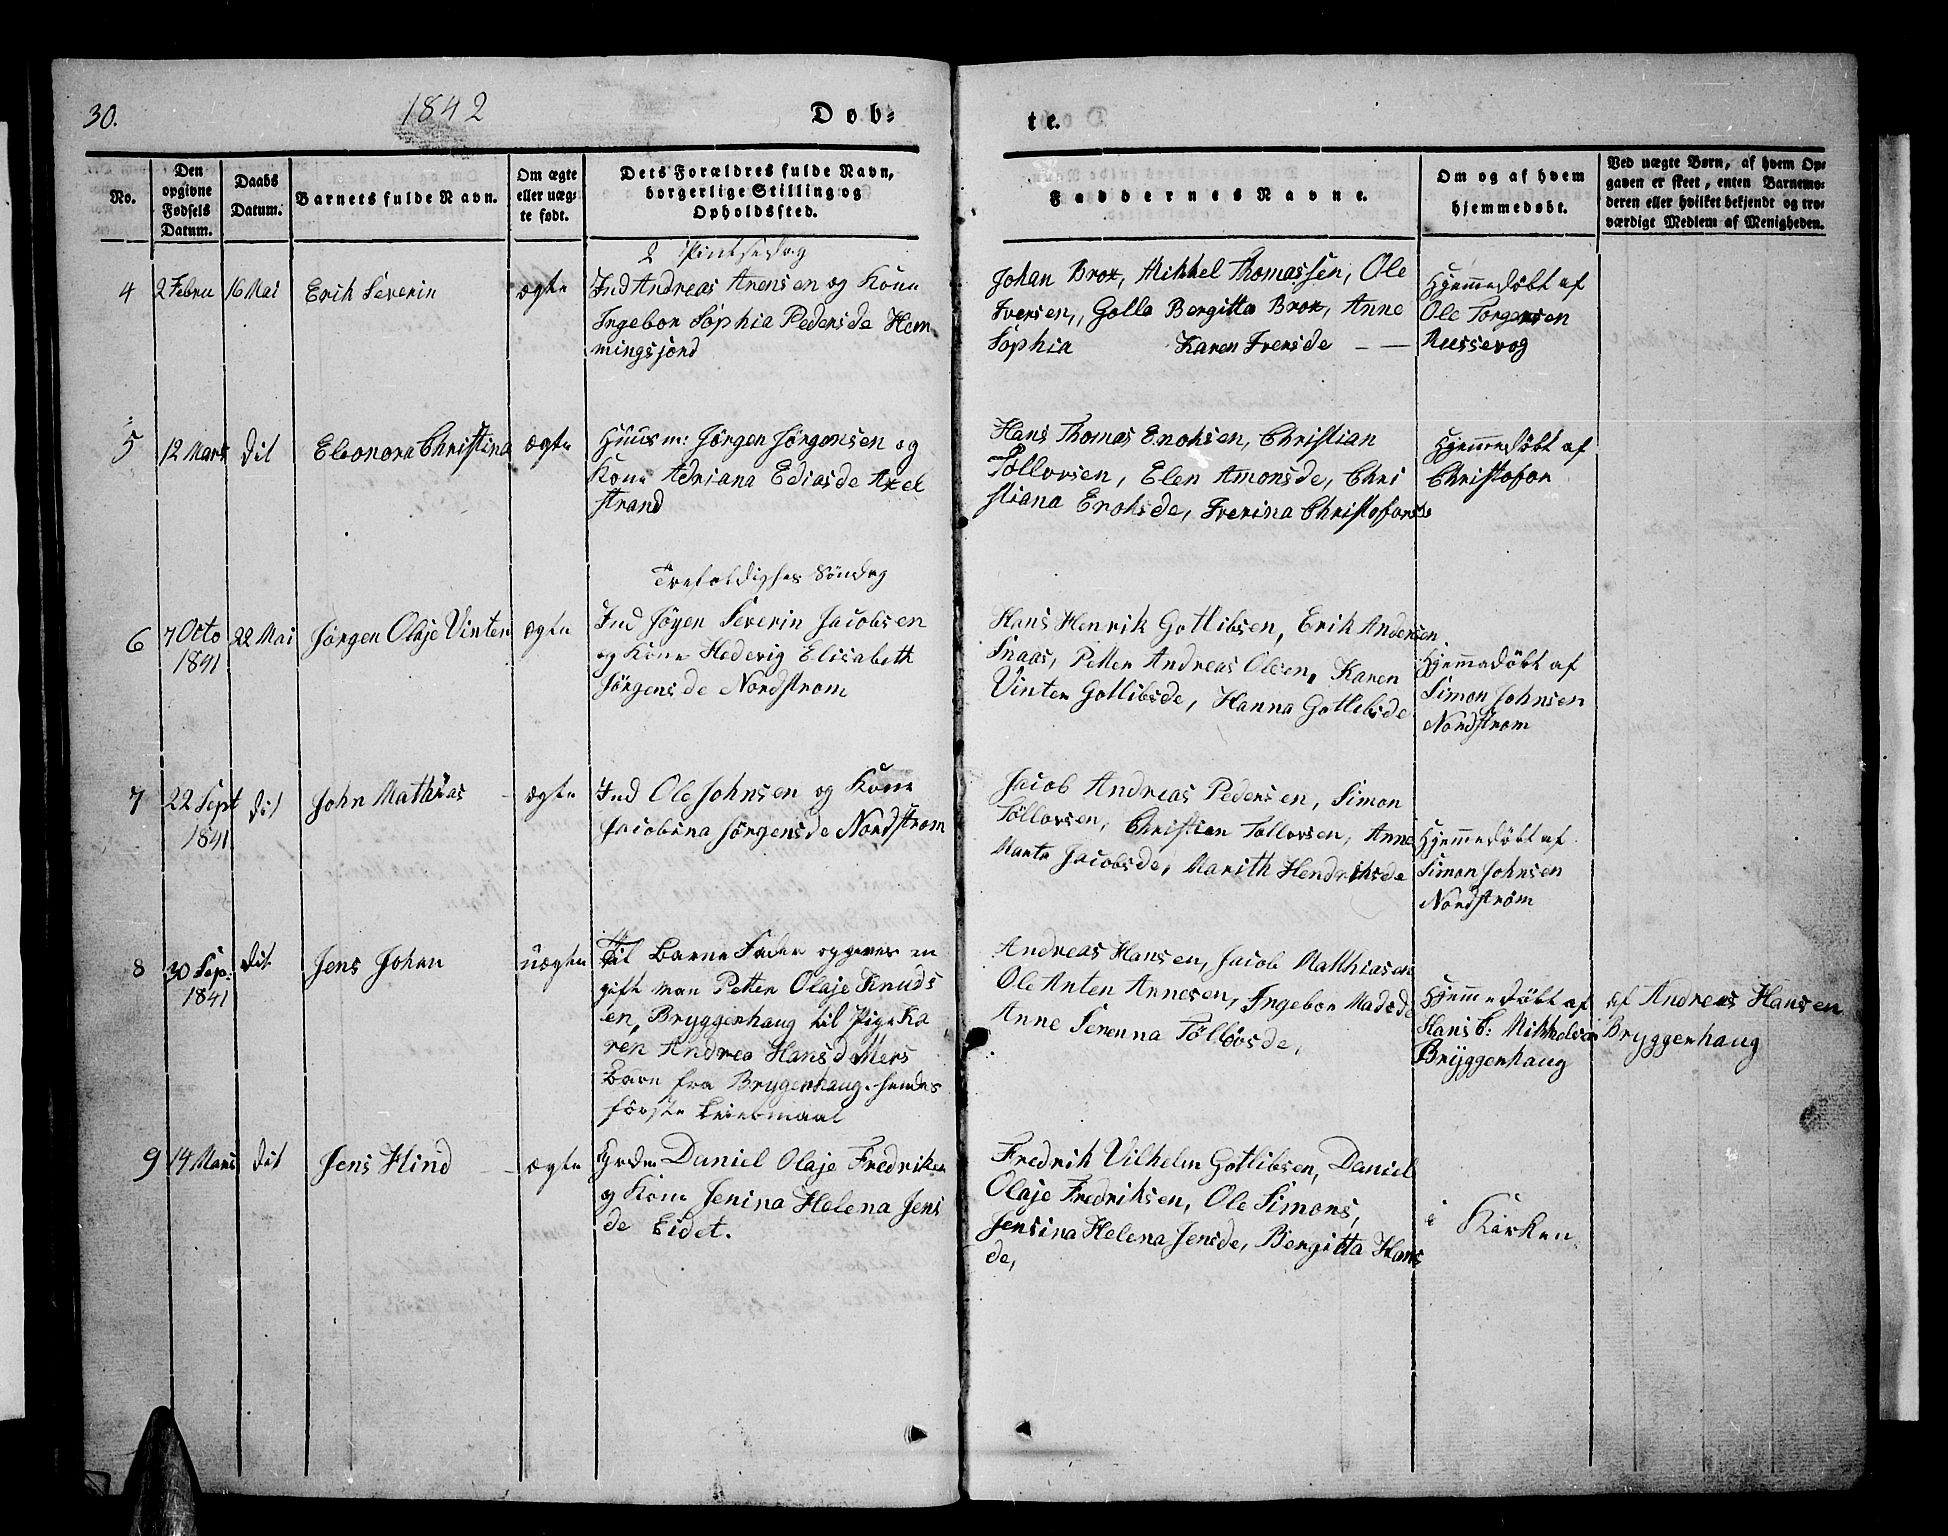 30.
1842
Døb-
te.
No.
Den opgivne Fødsels Datum.
Daabs Datum.
Barnets fulde Navn.
Om ægte eller uægte født.
Dets Forældres fulde Navn, borgerlige Stilling og Opholdssted.
Faddernes Navne.
Om og af hvem hjemmedøbt.
Ved uægte Børn, af hvem Opgaven er skeet, enten Barnemoderen eller hvilket bekjendt og troværdigt Medlem af Menigheden.
2 Pintsedag
4
2 Febru
16 Mai
Erik Severin
ægte
Ind Andreas Arensen og Kone
Ingebor Sophia Pedersde Hem
mingsjord
Johan Brox, Mikkel Thomassen, Ole
Iversen, Golla Bergitta Brox, Anne
Sophia Karen Iversde
Hjemmedøbt af
Ole Torgersen
Russevog
5
12 Mars
dit
Eleonora Christina
ægte
Huusm: Jørgen Jørgensen og
Kone Adriana Ediasde Axel
strand
Hans Thomas Enoksen, Christian
Tollovsen, Elen Amonsde, Chri
stiana Enoksde, Iverina Christofersde
Hjemmedøbt af
Christofor
Trefoldigheds Søndag
6
7 Octo
1841
22 Mai
Jørgen Olaje Vinter
ægte
Ind Jøgen Severin Jacobsen
og Kone Hedevig Elisabeth
Jørgensde Nordstrøm
Hans Henrik Gotlibsen, Erik Andersen
Snaas, Petter Andreas Olsen, Karen
Vinter Gotlibsde, Hanna Gotlibsde
Hjemmedøbt af
Simon Johnsen
Nordstrøm
7
22 Sept
1841
dit
John Mathias
ægte
Ind Ole Johnsen og Kone
Jacobina Jørgensde Nordstrøm
Jacob Andreas Pedersen, Simon
Tøllovsen, Christian Tollovsen, Anne
Marta Jacobsde, Marith Hendriksde
Hjemmedøbt af
Simon Johnsen
Nordstrøm
8
30 Sep.
1841
dit
Jens Johan
uægte
Til Barne Fader opgives en
gift man Petter Olaje Knuds
en, Bryggenhaug til Pige Ka
ren Andrea Hansd Mers
Barn fra Brygenhaug. hendes
første Leiermaal
Andreas Hansen, Jacob Matthiasen
Ole Anten Arnesen, Ingebor Madsde
Anne Serenna Tølløvsde,
Hjemmedøbt af
Hans C: Mikkelsen
Bryggenhaug
af Andreas Hansen
Bryggenhaug
9
14 Mars
dit
Jens Hind
ægte
Grdm Daniel Olaje Fredriksen
og Kone Jenina Helena Jens
de Eidet.
Fredrik Vilhelm Gotlibsen, Daniel
Olaje Fredriksen, Ole Simons,
Jensina Helena Jensde, Bergitta Hans
de,
i Kirken.